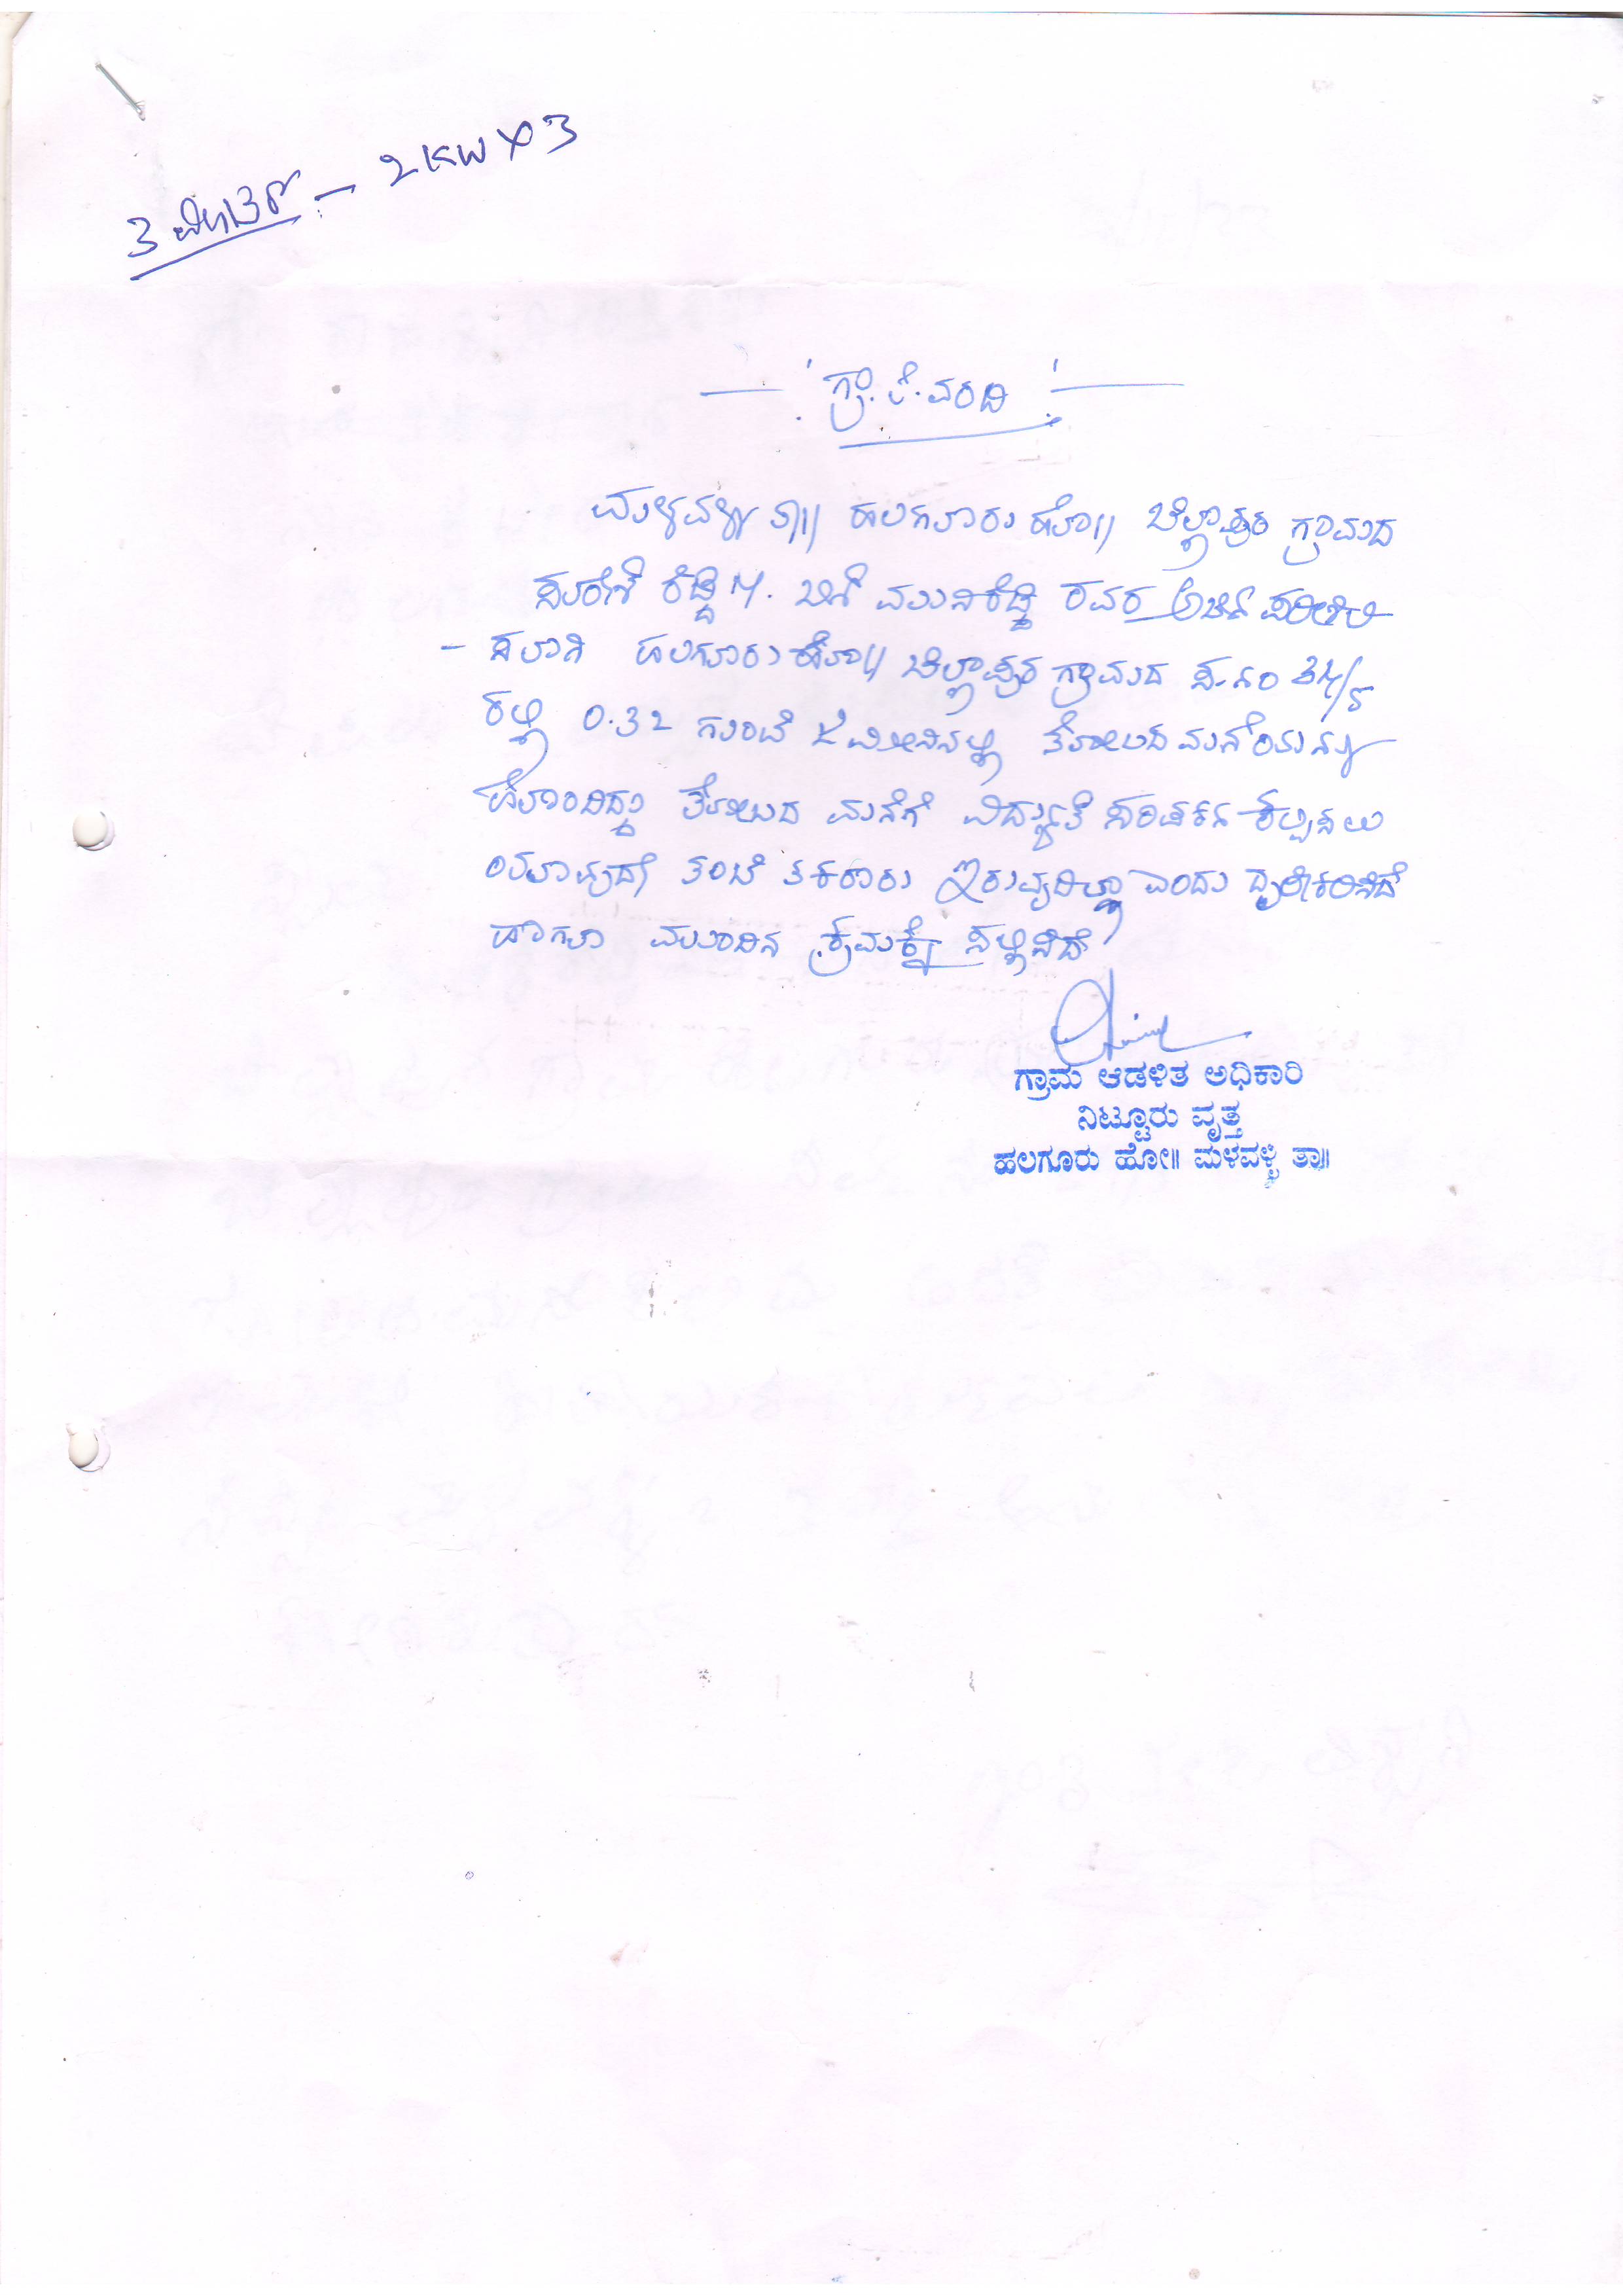 3 ಮೀಟರ್ - 2KW X 3
ಗ್ರಾ. ಲೆ. ವರದಿ
ಮಳವಳ್ಳಿ ತಾ|| ಹಲಗೂರು ಹೋ|| ಚಿಲ್ಲಾಪುರ ಗ್ರಾಮದ
ರೆಡ್ಡಿ ಬಿನ್ ಮುನಿರೆಡ್ಡಿ ರವರ ಅರ್ಜಿ ಪರಿಶೀಲಿ
- ಸಲಾಗಿ ಹಲಗೂರು ಹೋ|| ಚಿಲ್ಲಾಪುರ ಗ್ರಾಮದ ಸ.ನಂ 34/5
ರಲ್ಲಿ 0.32 ಗುಂಟೆ ಜಮೀನಿನಲ್ಲಿ ತೋಟದ ಮನೆಯನ್ನು
ಹೊಂದಿದ್ದು ತೋಟದ ಮನೆಗೆ ವಿದ್ಯುತ್ ಸಂಪರ್ಕ ಕಲ್ಪಿಸಲು
ಯಾವುದೇ ತಂಟೆ ತಕರಾರು ಇರುವುದಿಲ್ಲಾ ಎಂದು ದೃಢೀಕರಿಸಿದೆ
ಹಾಗೂ ಮುಂದಿನ ಕ್ರಮಕ್ಕೆ ಸಲ್ಲಿಸಿದೆ
ಗ್ರಾಮ ಆಡಳಿತ ಅಧಿಕಾರಿ
ನಿಟ್ಟೂರು ವೃತ್ತ
ಹಲಗೂರು ಹೋ|| ಮಳವಳ್ಳಿ ತಾ||